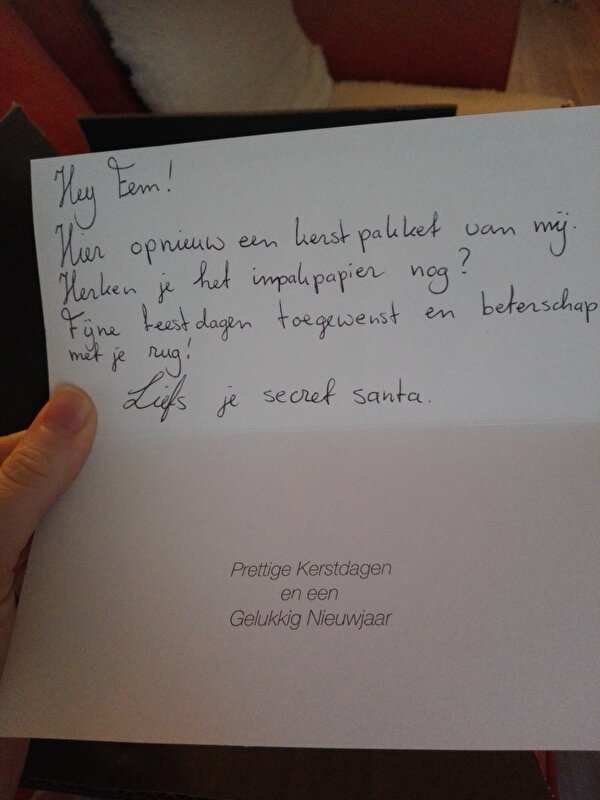 Hey Eem!
Hier opnieuw een kerstpakket van mij.
Herken je het inpakpapier nog?
Fijne feestdagen toegewenst en beterschap
met je rug!
Liefs je secret santa.
Prettige Kerstdagen
en een
Gelukkig Nieuwjaar